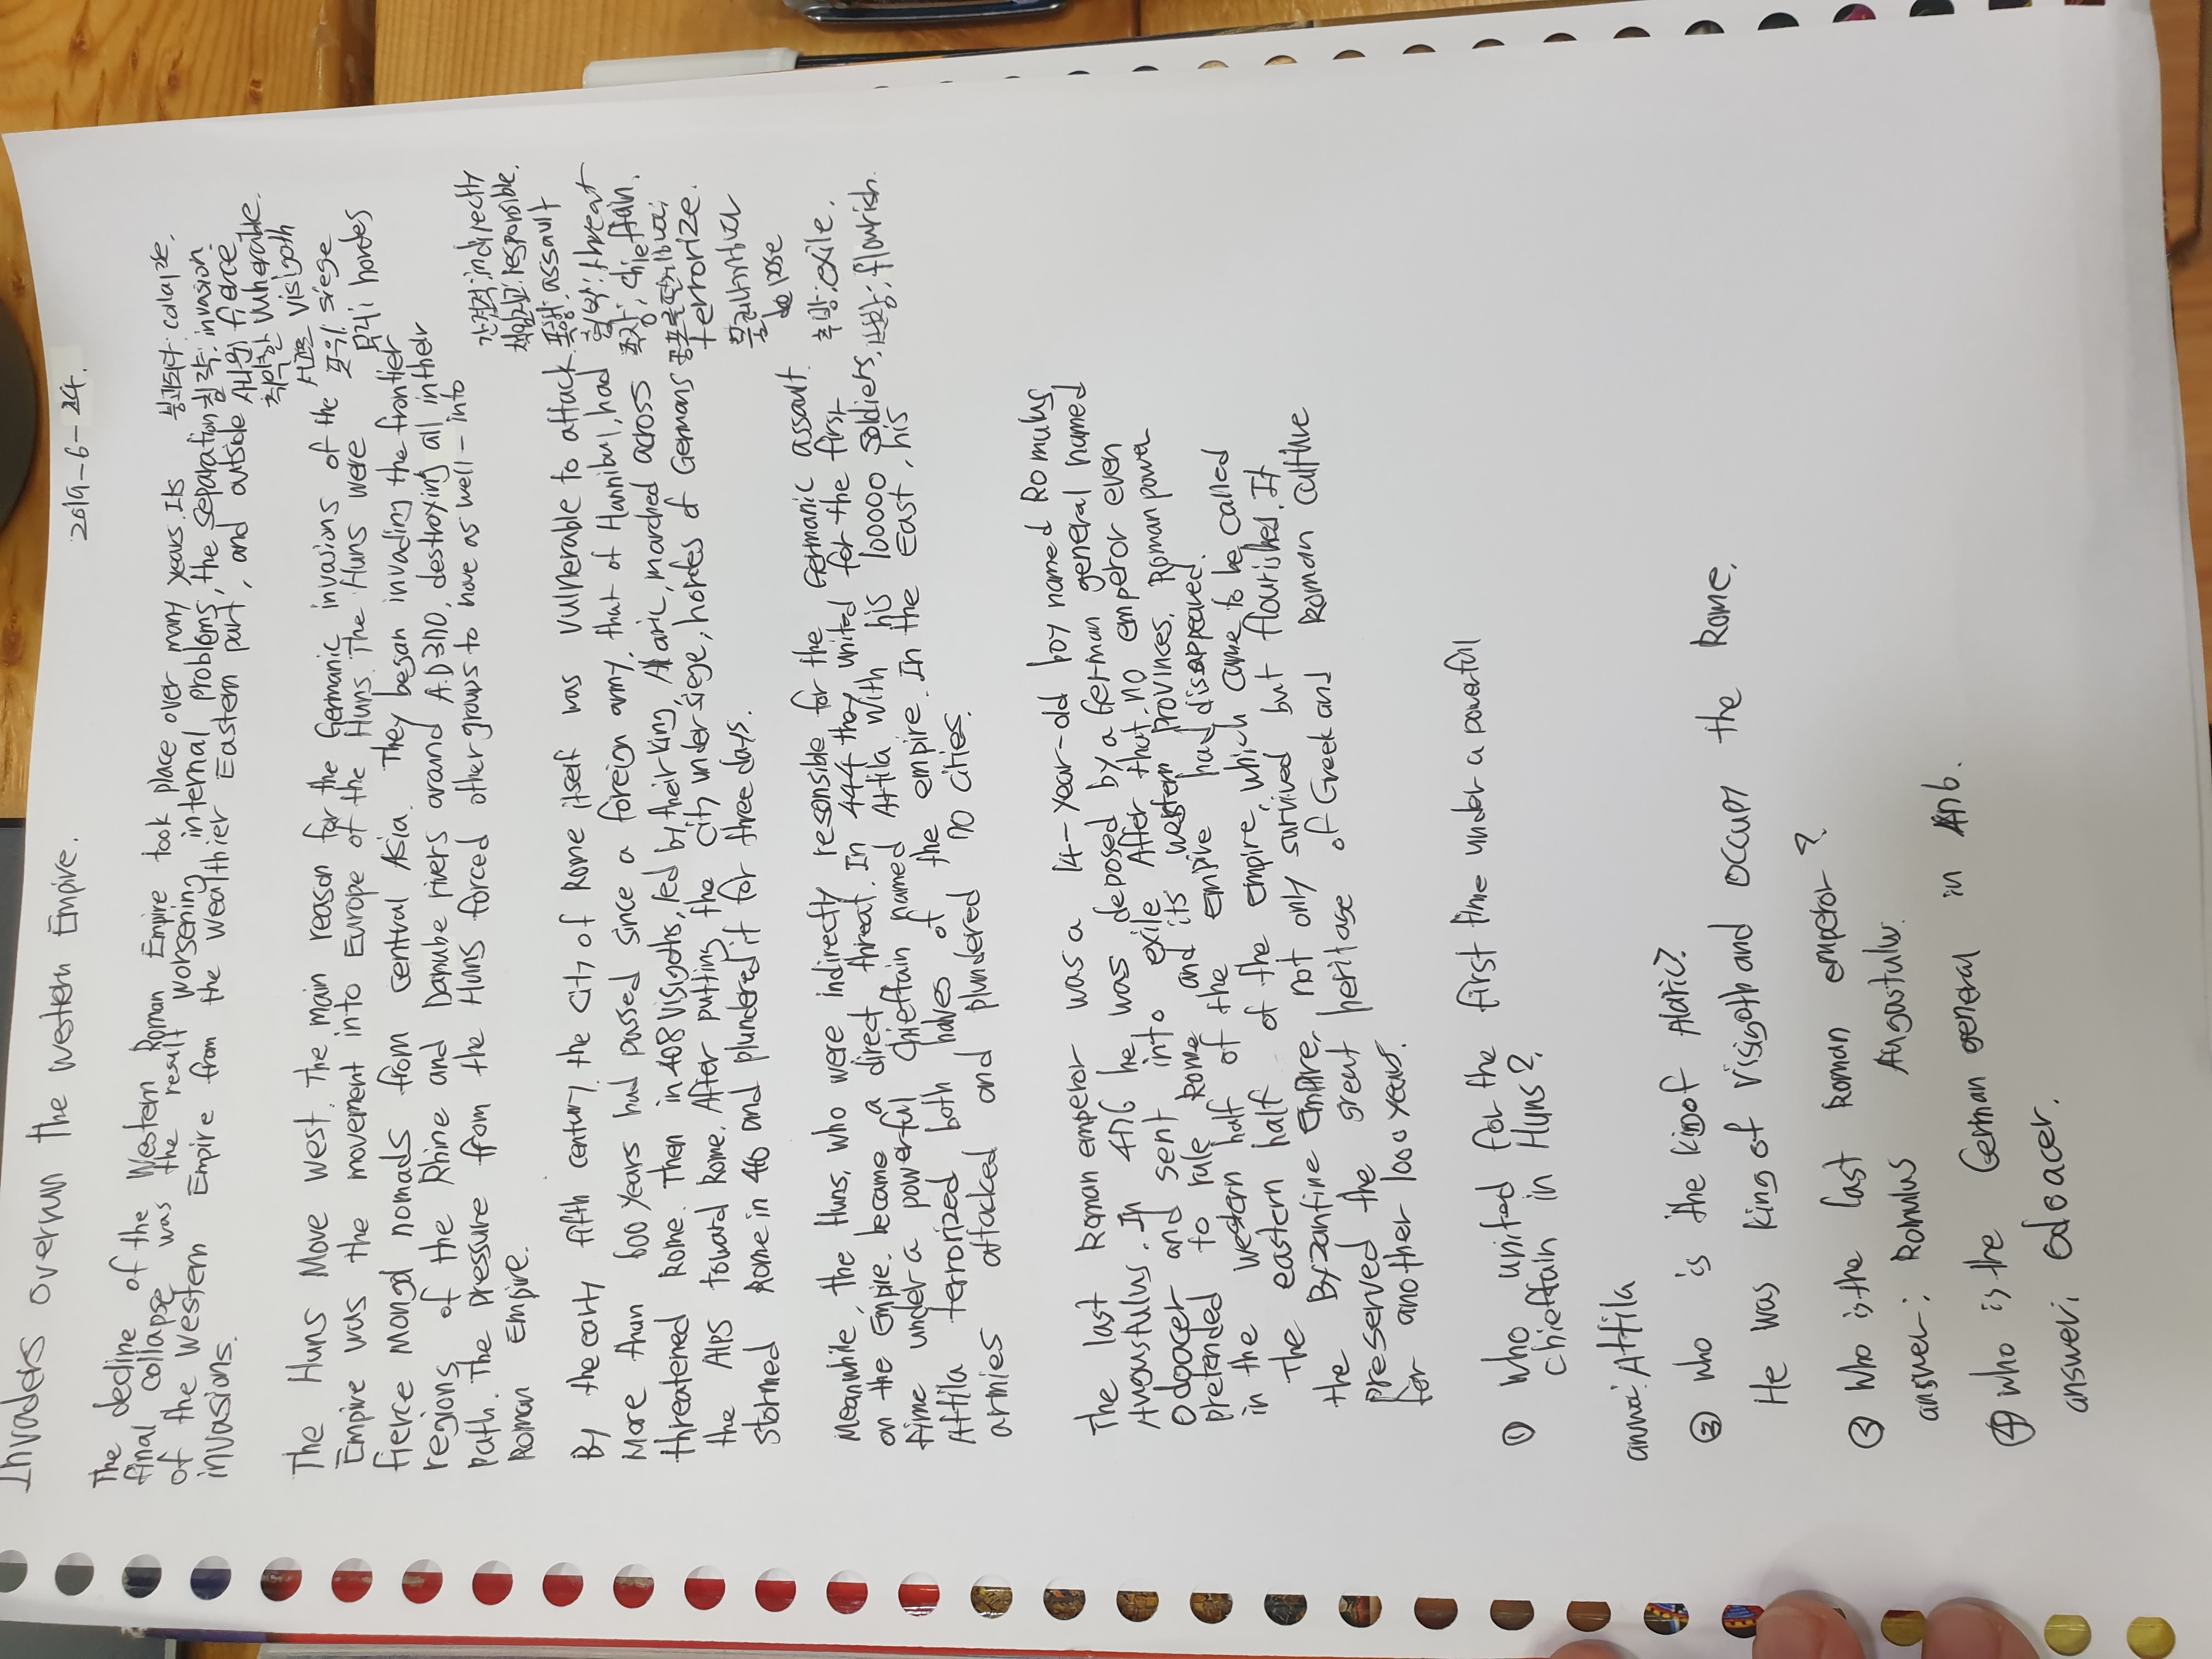 Invaders overrun the western Empire.
2019-6-24.
The decline of the Western Roman Empire took place over many years. Its
final collapse was the result worsening internal problems, the separation
of the Western Empire from the wealthier Eastern part, and outside
invasions.
붕괴되다: colapze.
침략: invasion
사나운 fierce
취약한 vulnerable.
서고트 visigoth
포위 siege
무리 hordes
The Huns Move West. The main reason for the Germanic invasions of the
Empire was the movement into Europe of the Huns. The Huns were
fierce Mongol nomads from central Asia. They began invading the frontier
regions of the Rhine and Danube rivers around A.D 370, destroying all in their
path. The pressure from the Huns forced other groups to move as well-into
Roman Empire.
간접적: indirectly
책임감: responsible.
폭행: assault
협박: threat
족장: chieftain.
terrorize.
depose
추방: exile.
번창: flourish.
By the early fifth century, the city of Rome itself was vulnerable to attack.
More than 600 years had passed since a foreign army, that of Hannibul, had
threatened Rome. Then in 408 Visigoths, led by their king, Alaric, marched across
the Alps toward Rome. After putting the city under siege, hordes of Germans
stormed Rome in 410 and plundered it for three days.
Meanwhile, the Huns, who were indirectly resonsible for the Germanic assault
on the Empire. became a direct threat. In 444 they united for the first
time under a powerful chieftain named Attila with his 100000 soldiers,
Attila terrorized both halves of the empire. In the East, his
armies attacked and plundered 70 cities.
The last Roman emperor was a 14-year-old boy named Romulus
Augustulus. In 476 he was deposed by a German general named
Odoacer and sent into exile After that, no emperor even
pretended to rule Rome and its western provinces. Roman power
in the western half of the empire had disappeared.
The eastern half of the empire, which came to be called
the Byzantine empire, not only survived but flourished. It
preserved the great heritage of Greek and Roman culture
for another 1000 years.
① who united for the first time under a powerfull
chieftain in Huns?
Attila
② who is the kingof Alaric?
He was king of Visigoth and occupy the Rome.
③ Who is the last Roman emperor?
answer: Romulus Augustulus.
④ who is the German general in 476.
answer: Odoacer.